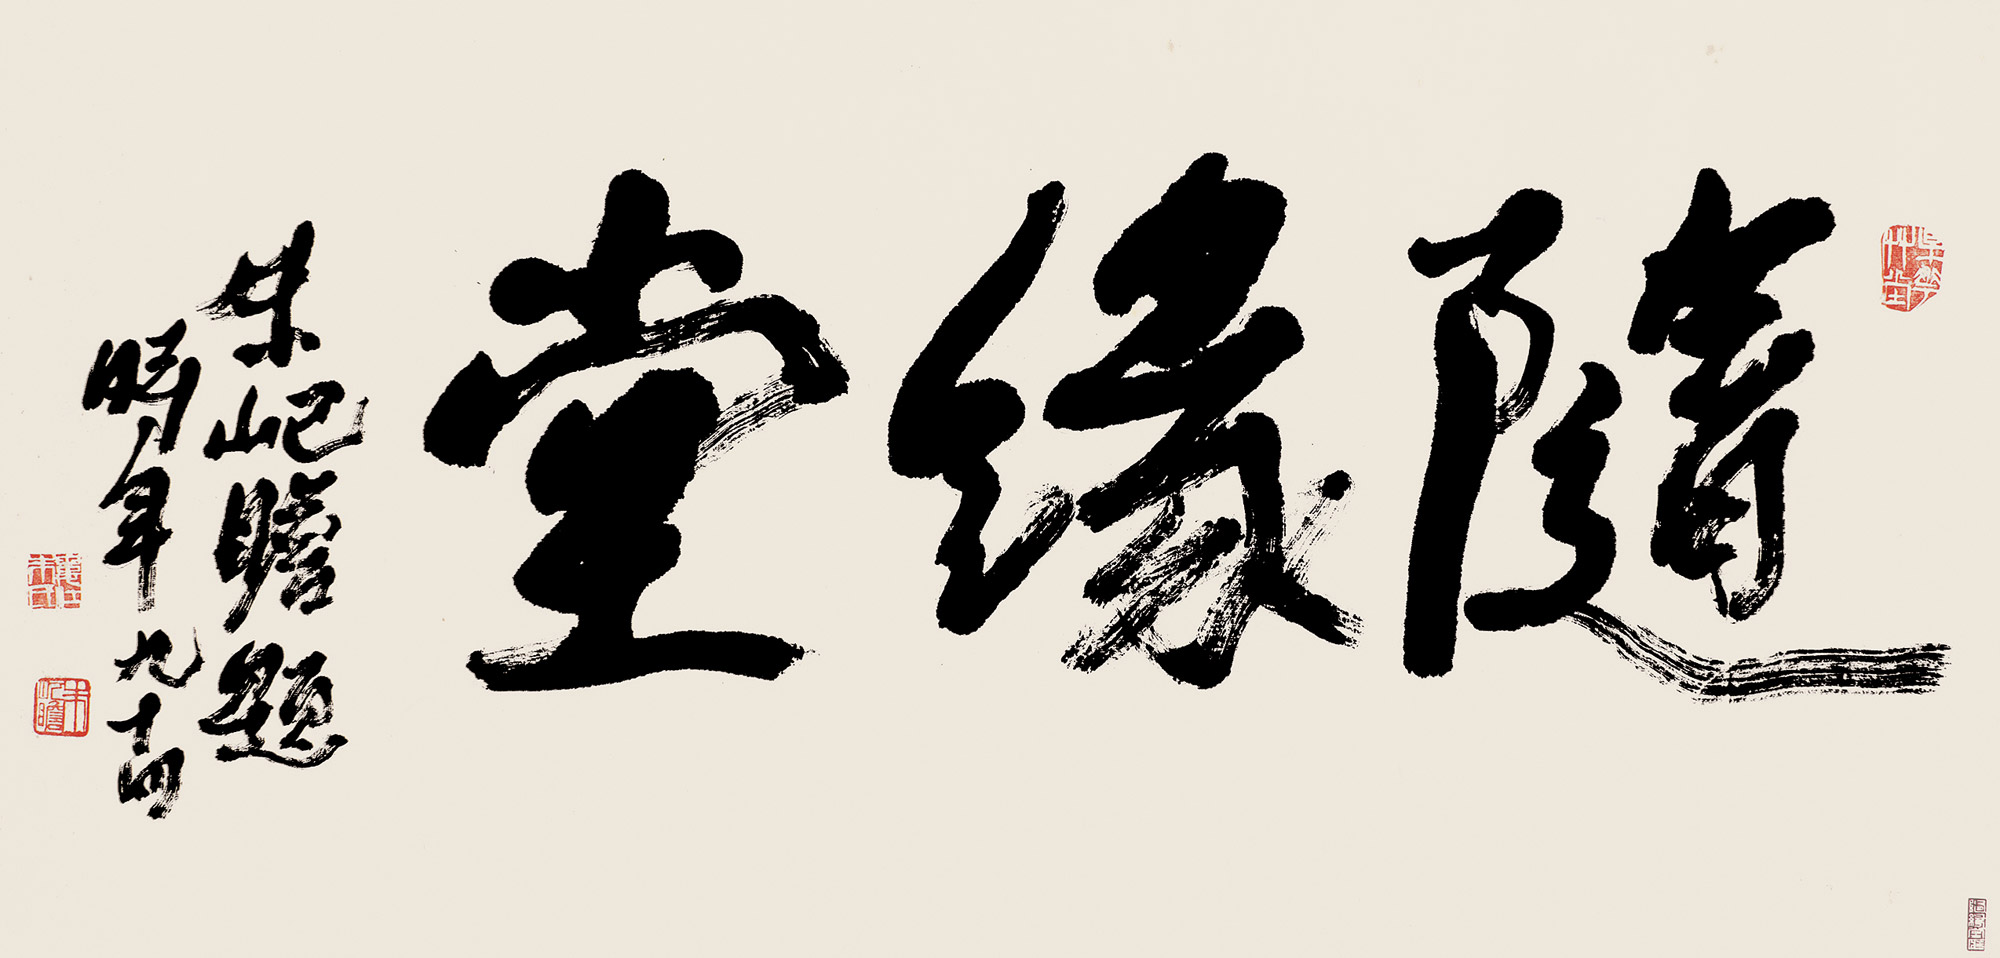 隨緣堂
朱屺瞻題
時年九十四
朱屺瞻